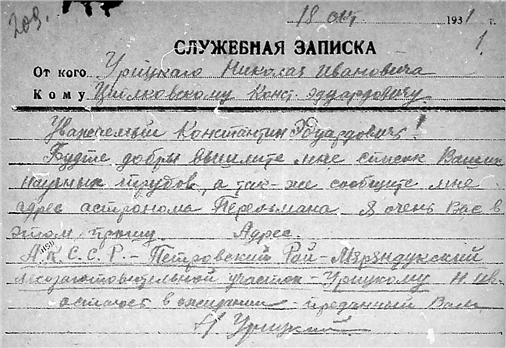 209.
18 окт 1931 г.
1.
СЛУЖЕБНАЯ ЗАПИСКА
От кого Урицкаго Николая Ивановича
Кому Циолковскому Конст. Эдуардовичу.
Уважаемый Константин Эдуардович!
Будте добры вышлите мне список Ваших
научных трудов, а так-же сообщите мне
адрес астронома Перельмана. Я очень Вас в
этом прошу. Адрес.
А.К.С.С.Р. - Петровский Рай -
участок - Урицкому Н. Ив.
остаюсь в ожидании - преданный Вам
Н. Урицкий.